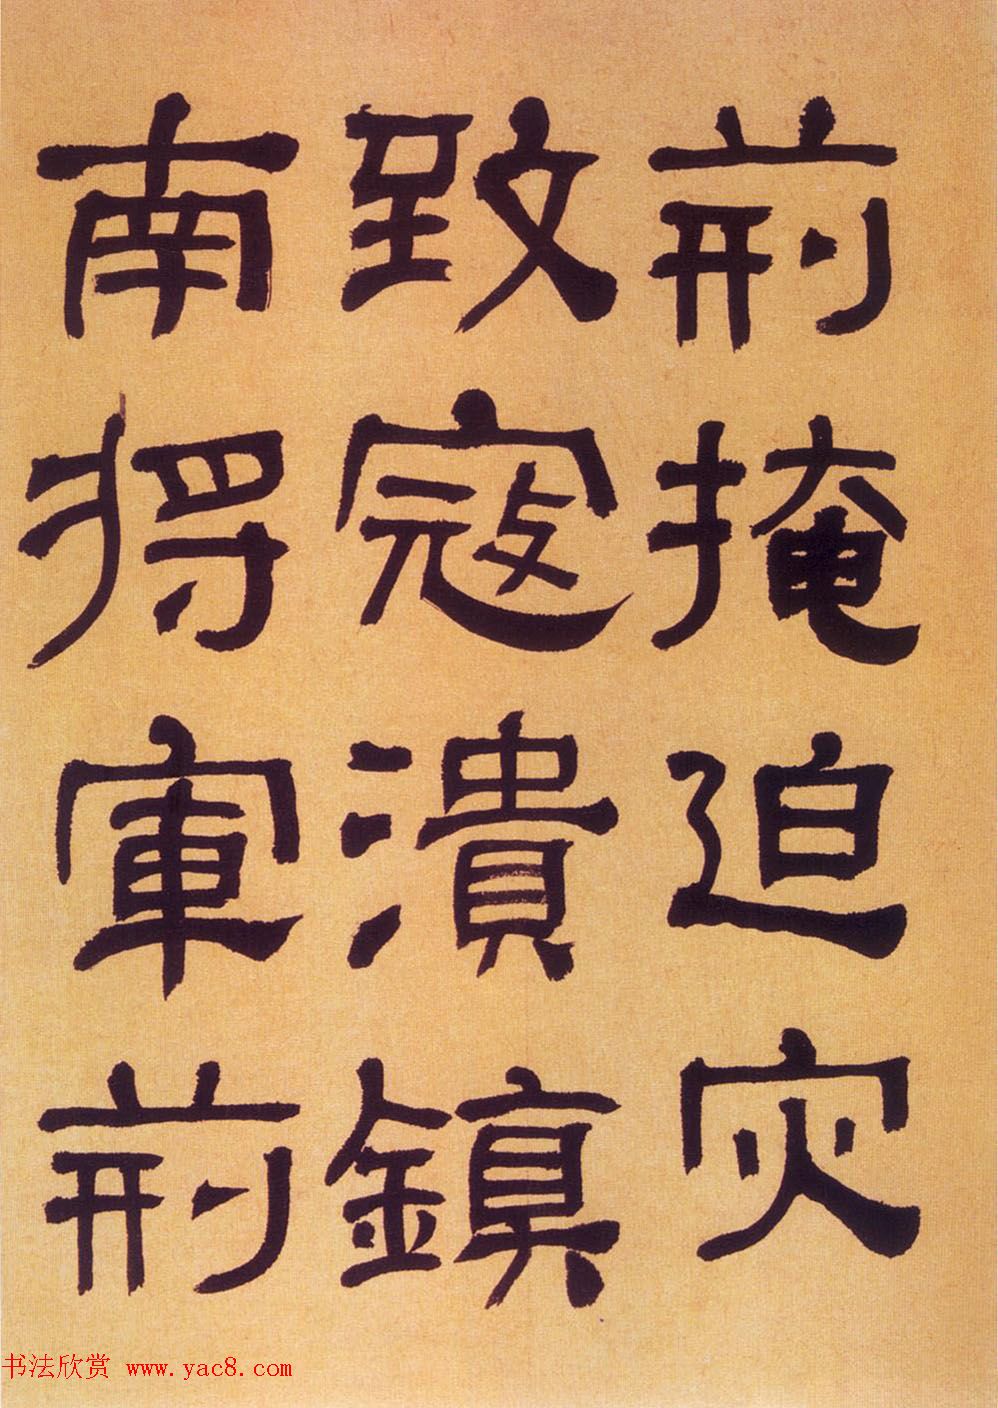 荊掩迫灾
致寇潰鎮
南将軍荊
书法欣赏 www.yac8.com